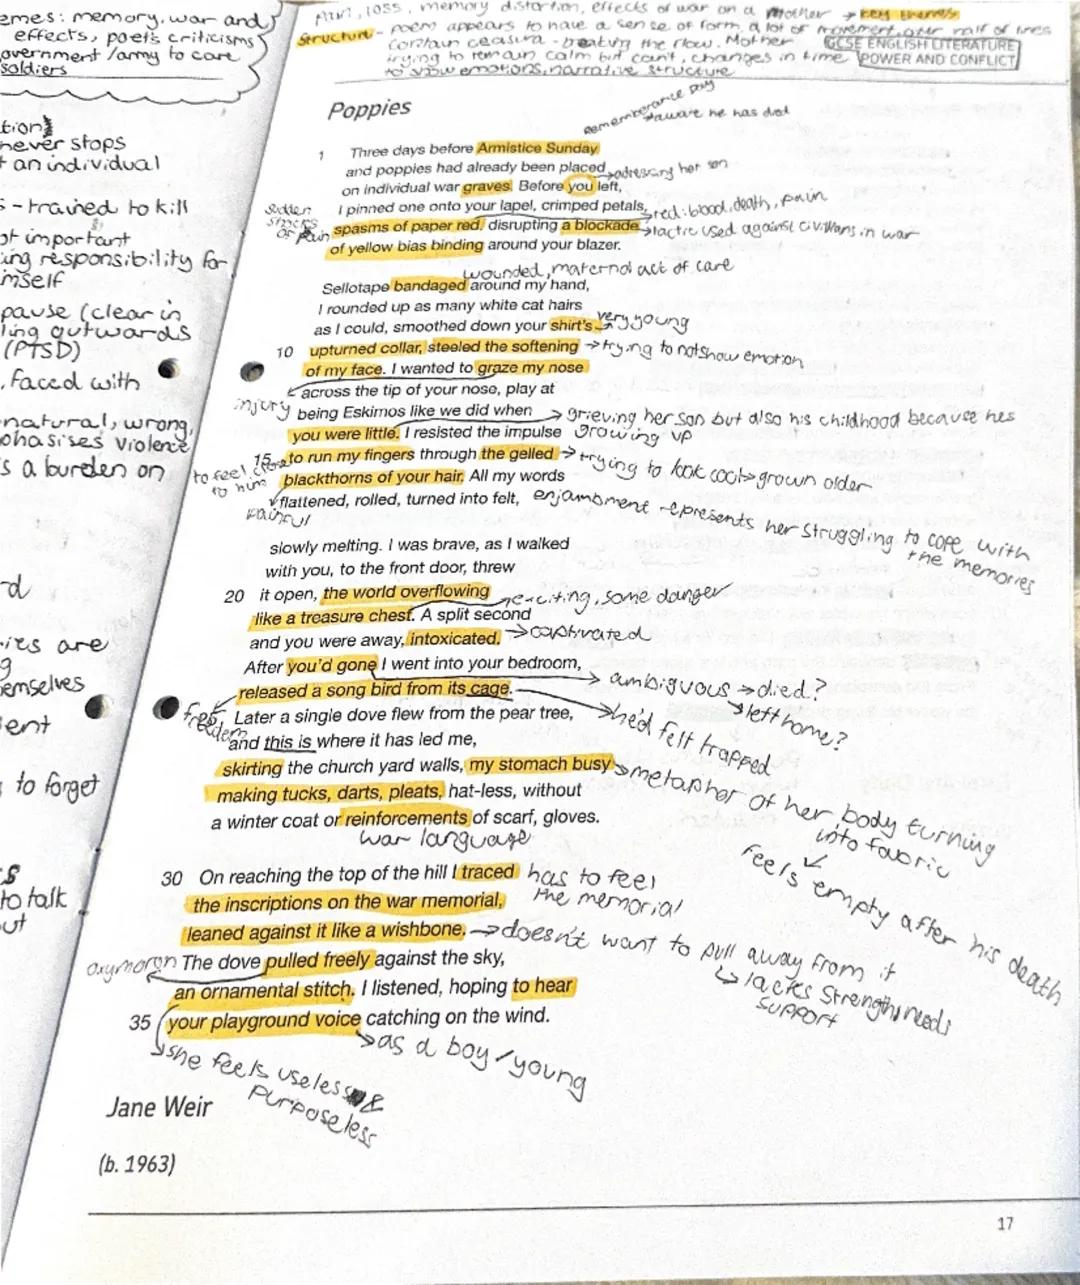 emes: memory, war and
effects, poet's criticisms
overnment/army to care
soldiers
tion
never stops
t an individual
s - trained to kill
ot important
ing responsibility for
mself
pause (clear in
ling outwards
(PTSD)
, faced with
natural, wrong,
phasises violence
s a burden on
rd
ries are
g
emselves
sent
to forget
s
to talk
out
pain, loss, memory distortion, effects of war on a mother → key themes
Structure - poem appears to have a sense of form, a lot of movement, over half of lines
contain ceasura - breaking the flow. Mother
trying to remain calm but can't, changes in time
to show emotions, narrative structure
GCSE ENGLISH LITERATURE
POWER AND CONFLICT
Poppies
Rememberance Day
→aware he has died
1 Three days before Armistice Sunday
and poppies had already been placed →adressing her son
on individual war graves. Before you left,
I pinned one onto your lapel, crimped petals, →red: blood, death, pain
sudden shocks of pain
spasms of paper red, disrupting a blockade →tactic used against civilians in war
of yellow bias binding around your blazer.
wounded, maternal act of care
Sellotape bandaged around my hand,
I rounded up as many white cat hairs
as I could, smoothed down your shirt's → very young
10 upturned collar, steeled the softening → trying to not show emotion
of my face. I wanted to graze my nose
across the tip of your nose, play at
injury
being Eskimos like we did when → grieving her son but also his childhood because hes
growing up
you were little. I resisted the impulse
15 to run my fingers through the gelled → trying to look cool → grown older
to feel close to him
blackthorns of your hair. All my words
painful
flattened, rolled, turned into felt, enjambment represents her struggling to cope with
the memories
slowly melting. I was brave, as I walked
with you, to the front door, threw
20 it open, the world overflowing → exciting, some danger
like a treasure chest. A split second
and you were away, intoxicated. → captivated
After you'd gone I went into your bedroom, → ambiguous → died?
→ left home?
released a song bird from its cage. → he'd felt trapped
freedom
Later a single dove flew from the pear tree,
and this is where it has led me,
skirting the church yard walls, my stomach busy → metaphor of her body turning
into fabric
making tucks, darts, pleats, hat-less, without
feels empty after his death
a winter coat or reinforcements of scarf, gloves.
war language
30 On reaching the top of the hill I traced has to feel
the memorial
the inscriptions on the war memorial,
leaned against it like a wishbone. → doesn't want to pull away from it
↳ lacks strength, needs
support
oxymoron The dove pulled freely against the sky,
an ornamental stitch. I listened, hoping to hear
35 your playground voice catching on the wind.
→ as a boy/young
she feels useless &
purposeless
Jane Weir
(b. 1963)
17